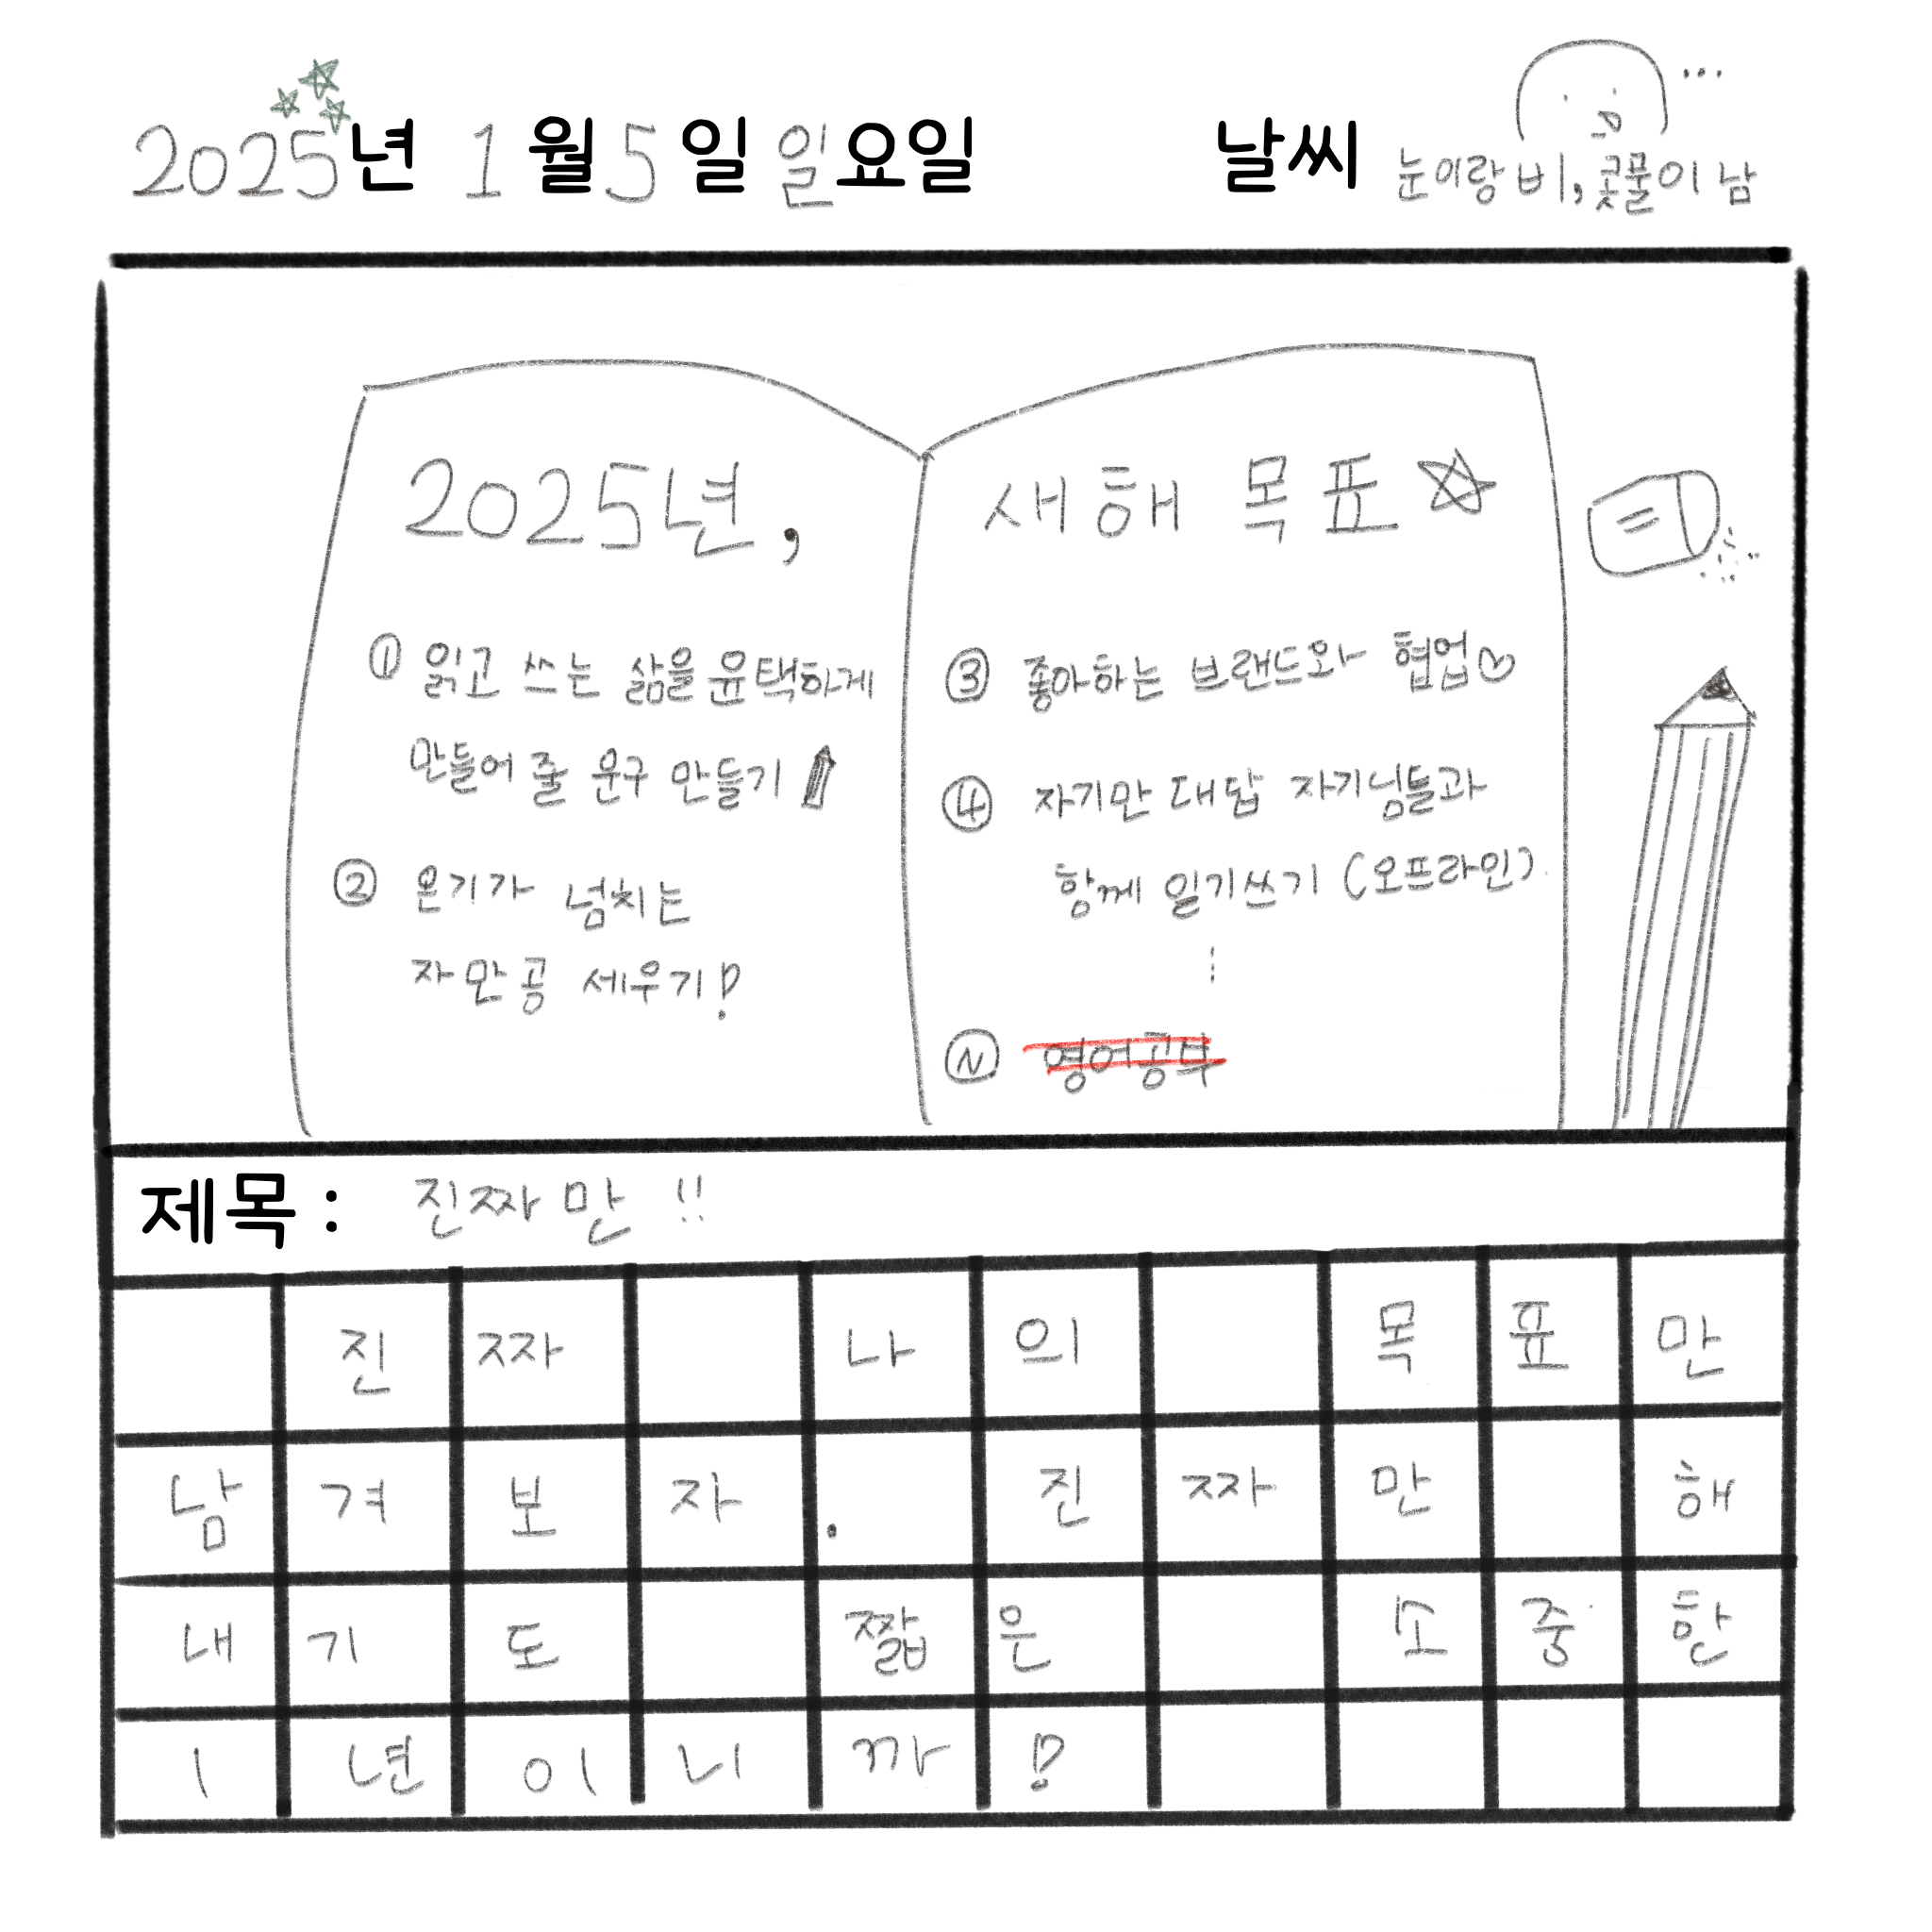 2025년 1월 5일 일요일 날씨 눈이랑 비, 콧물이 남
2025년,
① 읽고 쓰는 삶을 윤택하게
만들어 줄 문구 만들기
② 온기가 넘치는
자만공 세우기!
새해 목표☆
③ 좋아하는 브랜드와 협업♡
④ 자기만 대답 자기님들과
함께 일기쓰기 (오프라인).
⋮
Ⓝ 영어공부
제목 : 진짜만 !!
진짜 나의 목표만
남겨보자. 진짜만 해
내기도 짧은 소중한
1년이니까!